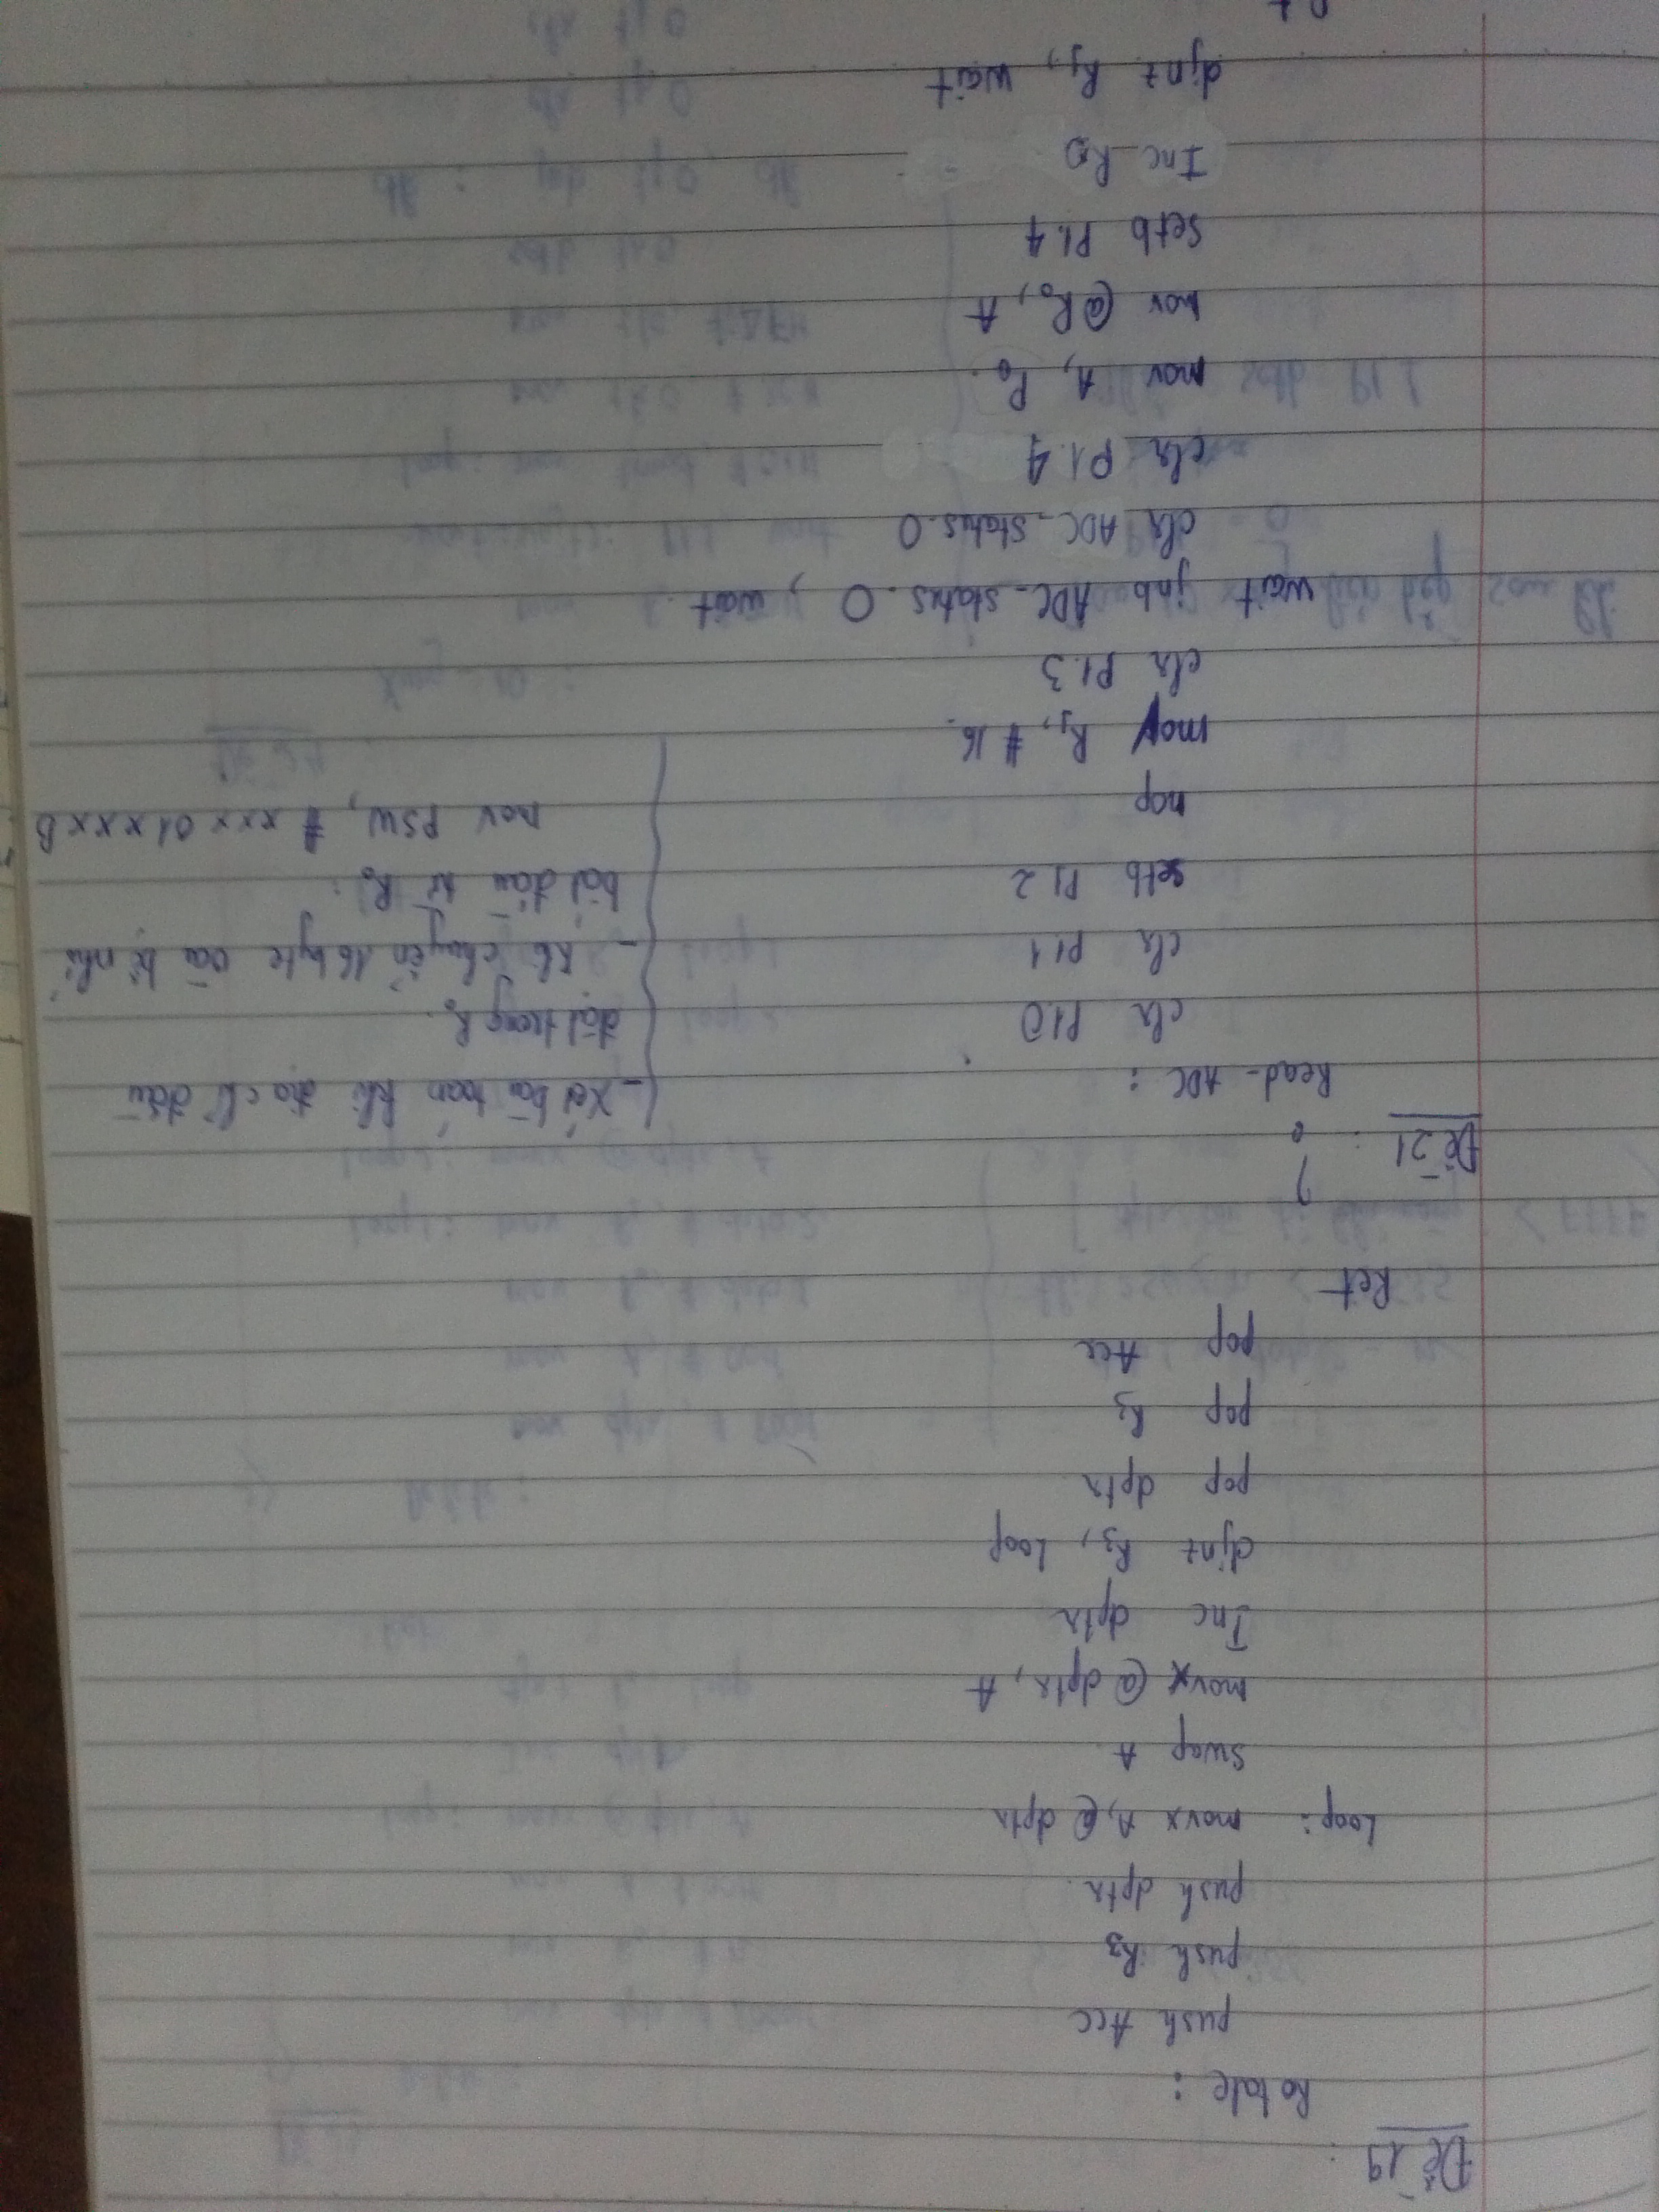 Đề 19 :
Rotale :
push Acc
push R3
push dptr.
Loop: movx A, @ dptr
swap A
movx @ dptr, A
Inc dptr
djnz R3, Loop
pop dptr
pop R3
pop Acc
Ret
Đề 21 : ?
Read_ ADC :
clr P1.0
clr P1.1
setb P1.2
nop
mov R1, # 16.
clr P1.3
wait jnb ADC_status.0 , wait
clr ADC_status.0
clr P1.4
mov A, P0.
mov @R0, A
setb P1.4
Inc R0
djnz R1, wait
- Xét bài toán khi địa chỉ đầu
đặt trong R0.
- Khi chuyển 16 byte vào bộ nhớ
bắt đầu từ R0 :
mov PSW, # xxx 01 xxx B